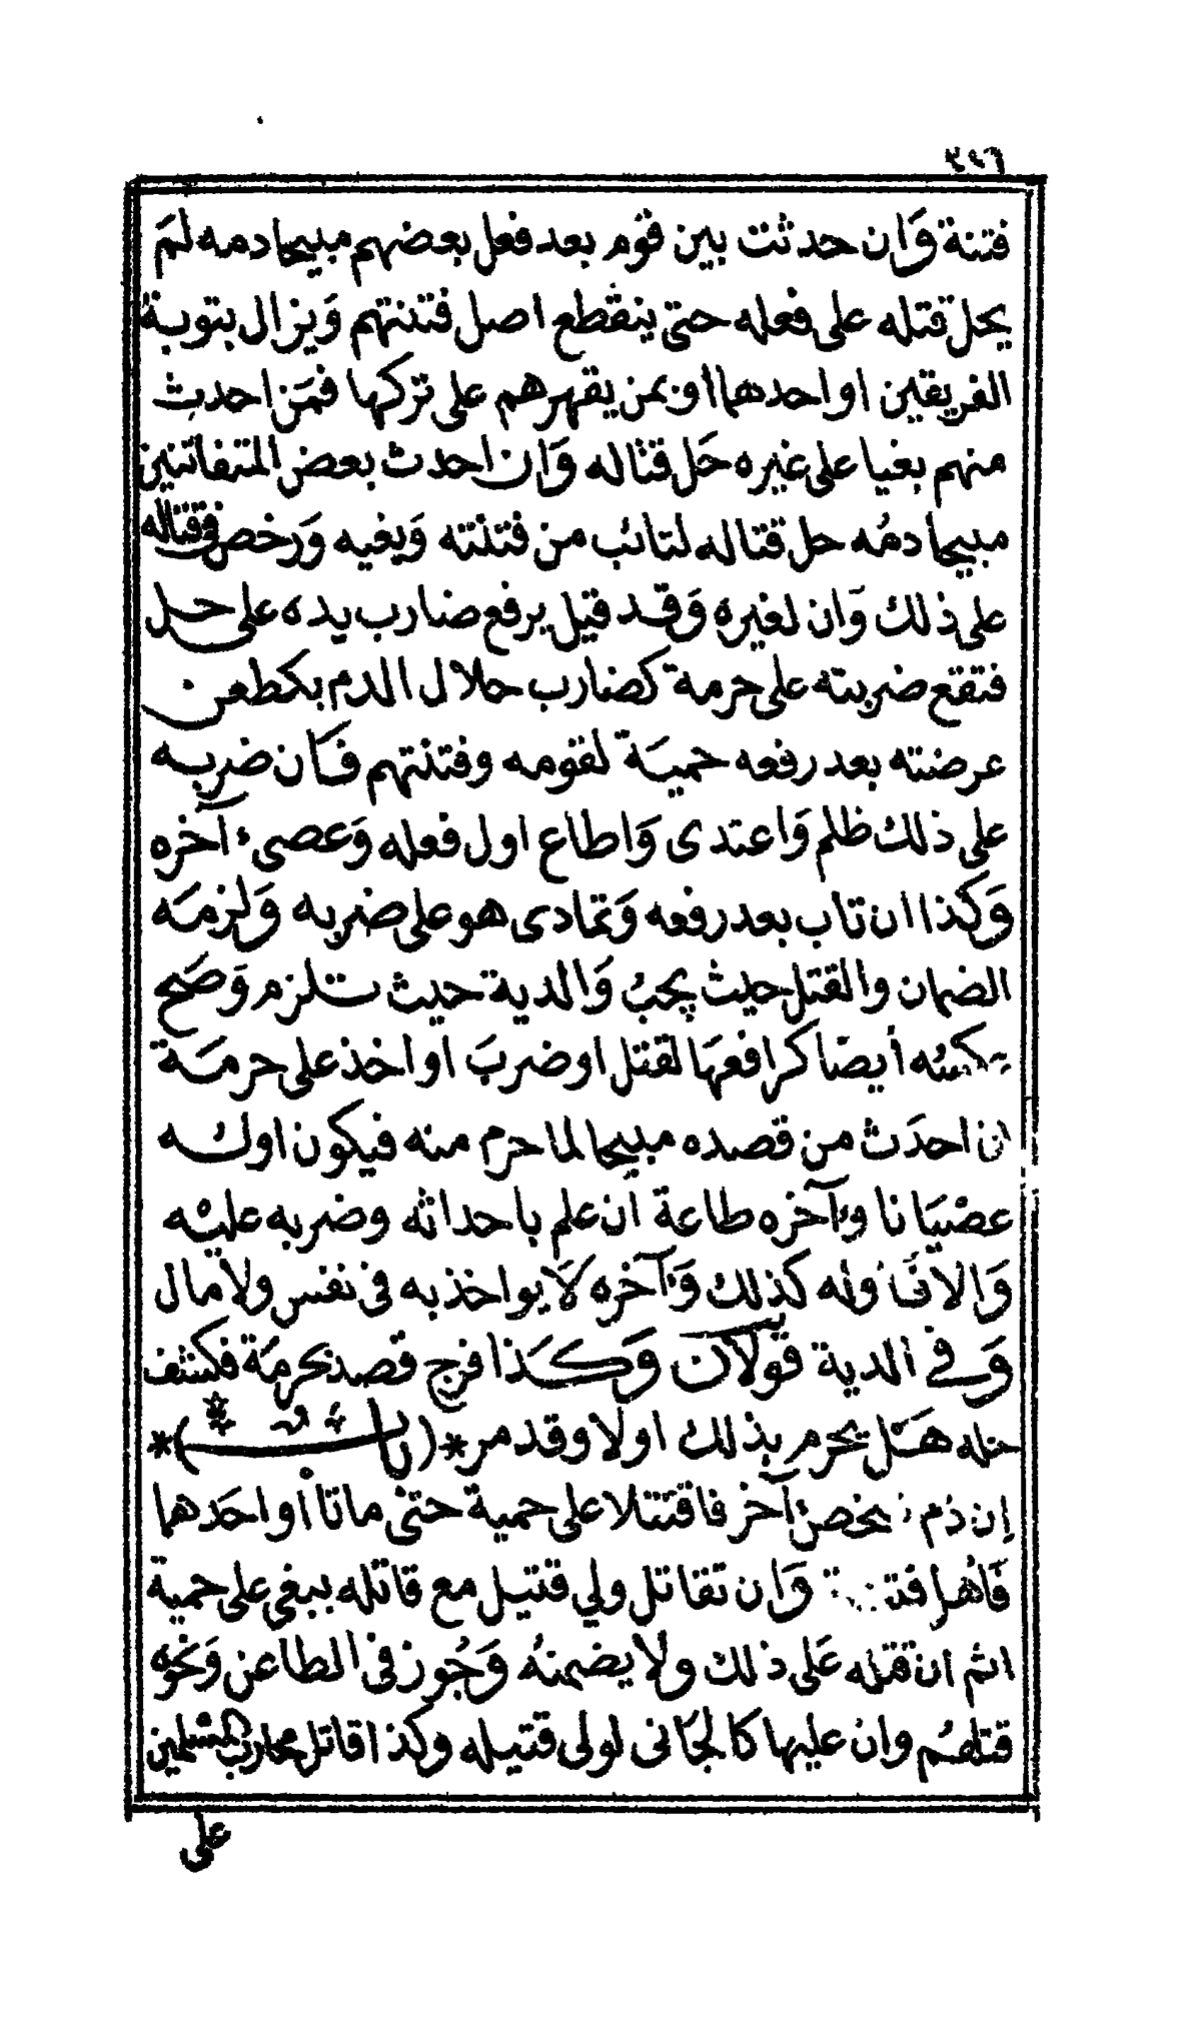 ٢٩٦
فتنة وَان حدثت بين قوم بعد فعل بعضهم مبيحا دمه لم
يحل قتله على فعله حتى ينقطع اصل فتنتهم وَيزال بتوبة
الفريقين او احدهما أو بمن يقهرهم على تركها فمَن احدث
منهم بغيا على غيره حَل قتاله وَان احدث بعض المتفاتنين
مبيحا دمُه حل قتاله لتائب من فتنته وَبغيه وَرخص فى قتاله
على ذلك وَان لغيره وَقد قيل يرفع ضارب يده على حل
فتقع ضربته على حرمة كضارب حلال الدم بكطعن
عرضته بعد رفعه حميَة لقومه وفتنتهم فَان ضربه
على ذلك ظلم وَاعتدى وَاطاع اول فعله وَعصىء آخره
وَكذا ان تاب بعد رفعه وَتمادى هو على ضربه وَلزمَه
الضمان والقتل حيث يجبُ وَالدية حيث تلزم وَصح
عكسُه أيضا كرافعهَا لقتل او ضربَ او أخذ على حرمَة
ان احدَث من قصده مبيحا لما حرم منه فيكون اوله
عصْيَانا وءآخره طاعة ان علم باحداثه وضربه عليْه
وَالا فَأوله كذلك وَءآخره لا يواخذ به فى نفس ولا مال
وَفى الدية قولان وَكَذا فرج قصد بحرمَة فكشف
حله هَل يحرم بذلك اولا وقد مر *(باب)*
إن آخر فاقتتلا على حمية حتىْ ماتا أو احَدهما
فَأهْلها وَان تقاتل ولي قتيل مع قاتله ببغى على حمية
اثم ان قتله عَلى ذلك ولا يضمنُه وَجُوز فى الطاعن وَنحوه
قتلهُم وان عليها كالجَانى لولى قتيله وكذا قاتل محارب المسْلمين
على